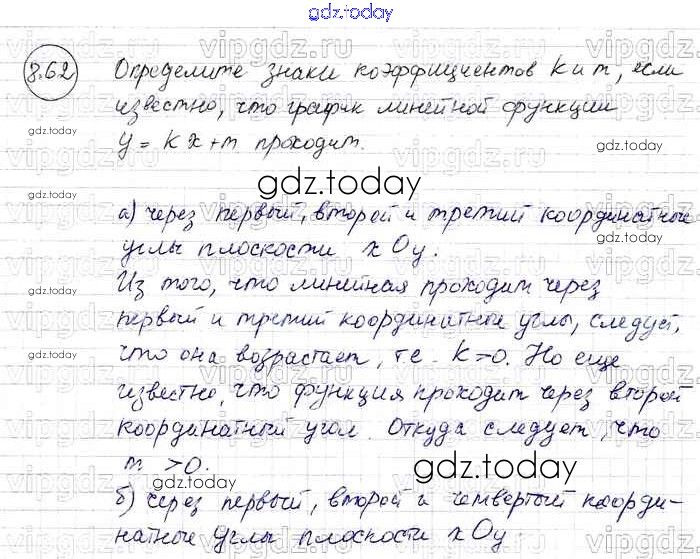 gdz.today
8.62 Определите знаки коэффициентов k и m, если
известно, что график линейной функции
y = kx+m проходит.
gdz.today
а) через первый, второй и третий координатные
углы плоскости xOy.
Из того, что линейная проходит через
первый и третий координатные углы, следует,
что она возрастает, т.е. k>0. Но еще
известно, что функция проходит через второй
координатный угол. Откуда следует, что
m >0.
gdz.today
б) через первый, второй и четвертый коорди-
натные углы плоскости xOy.